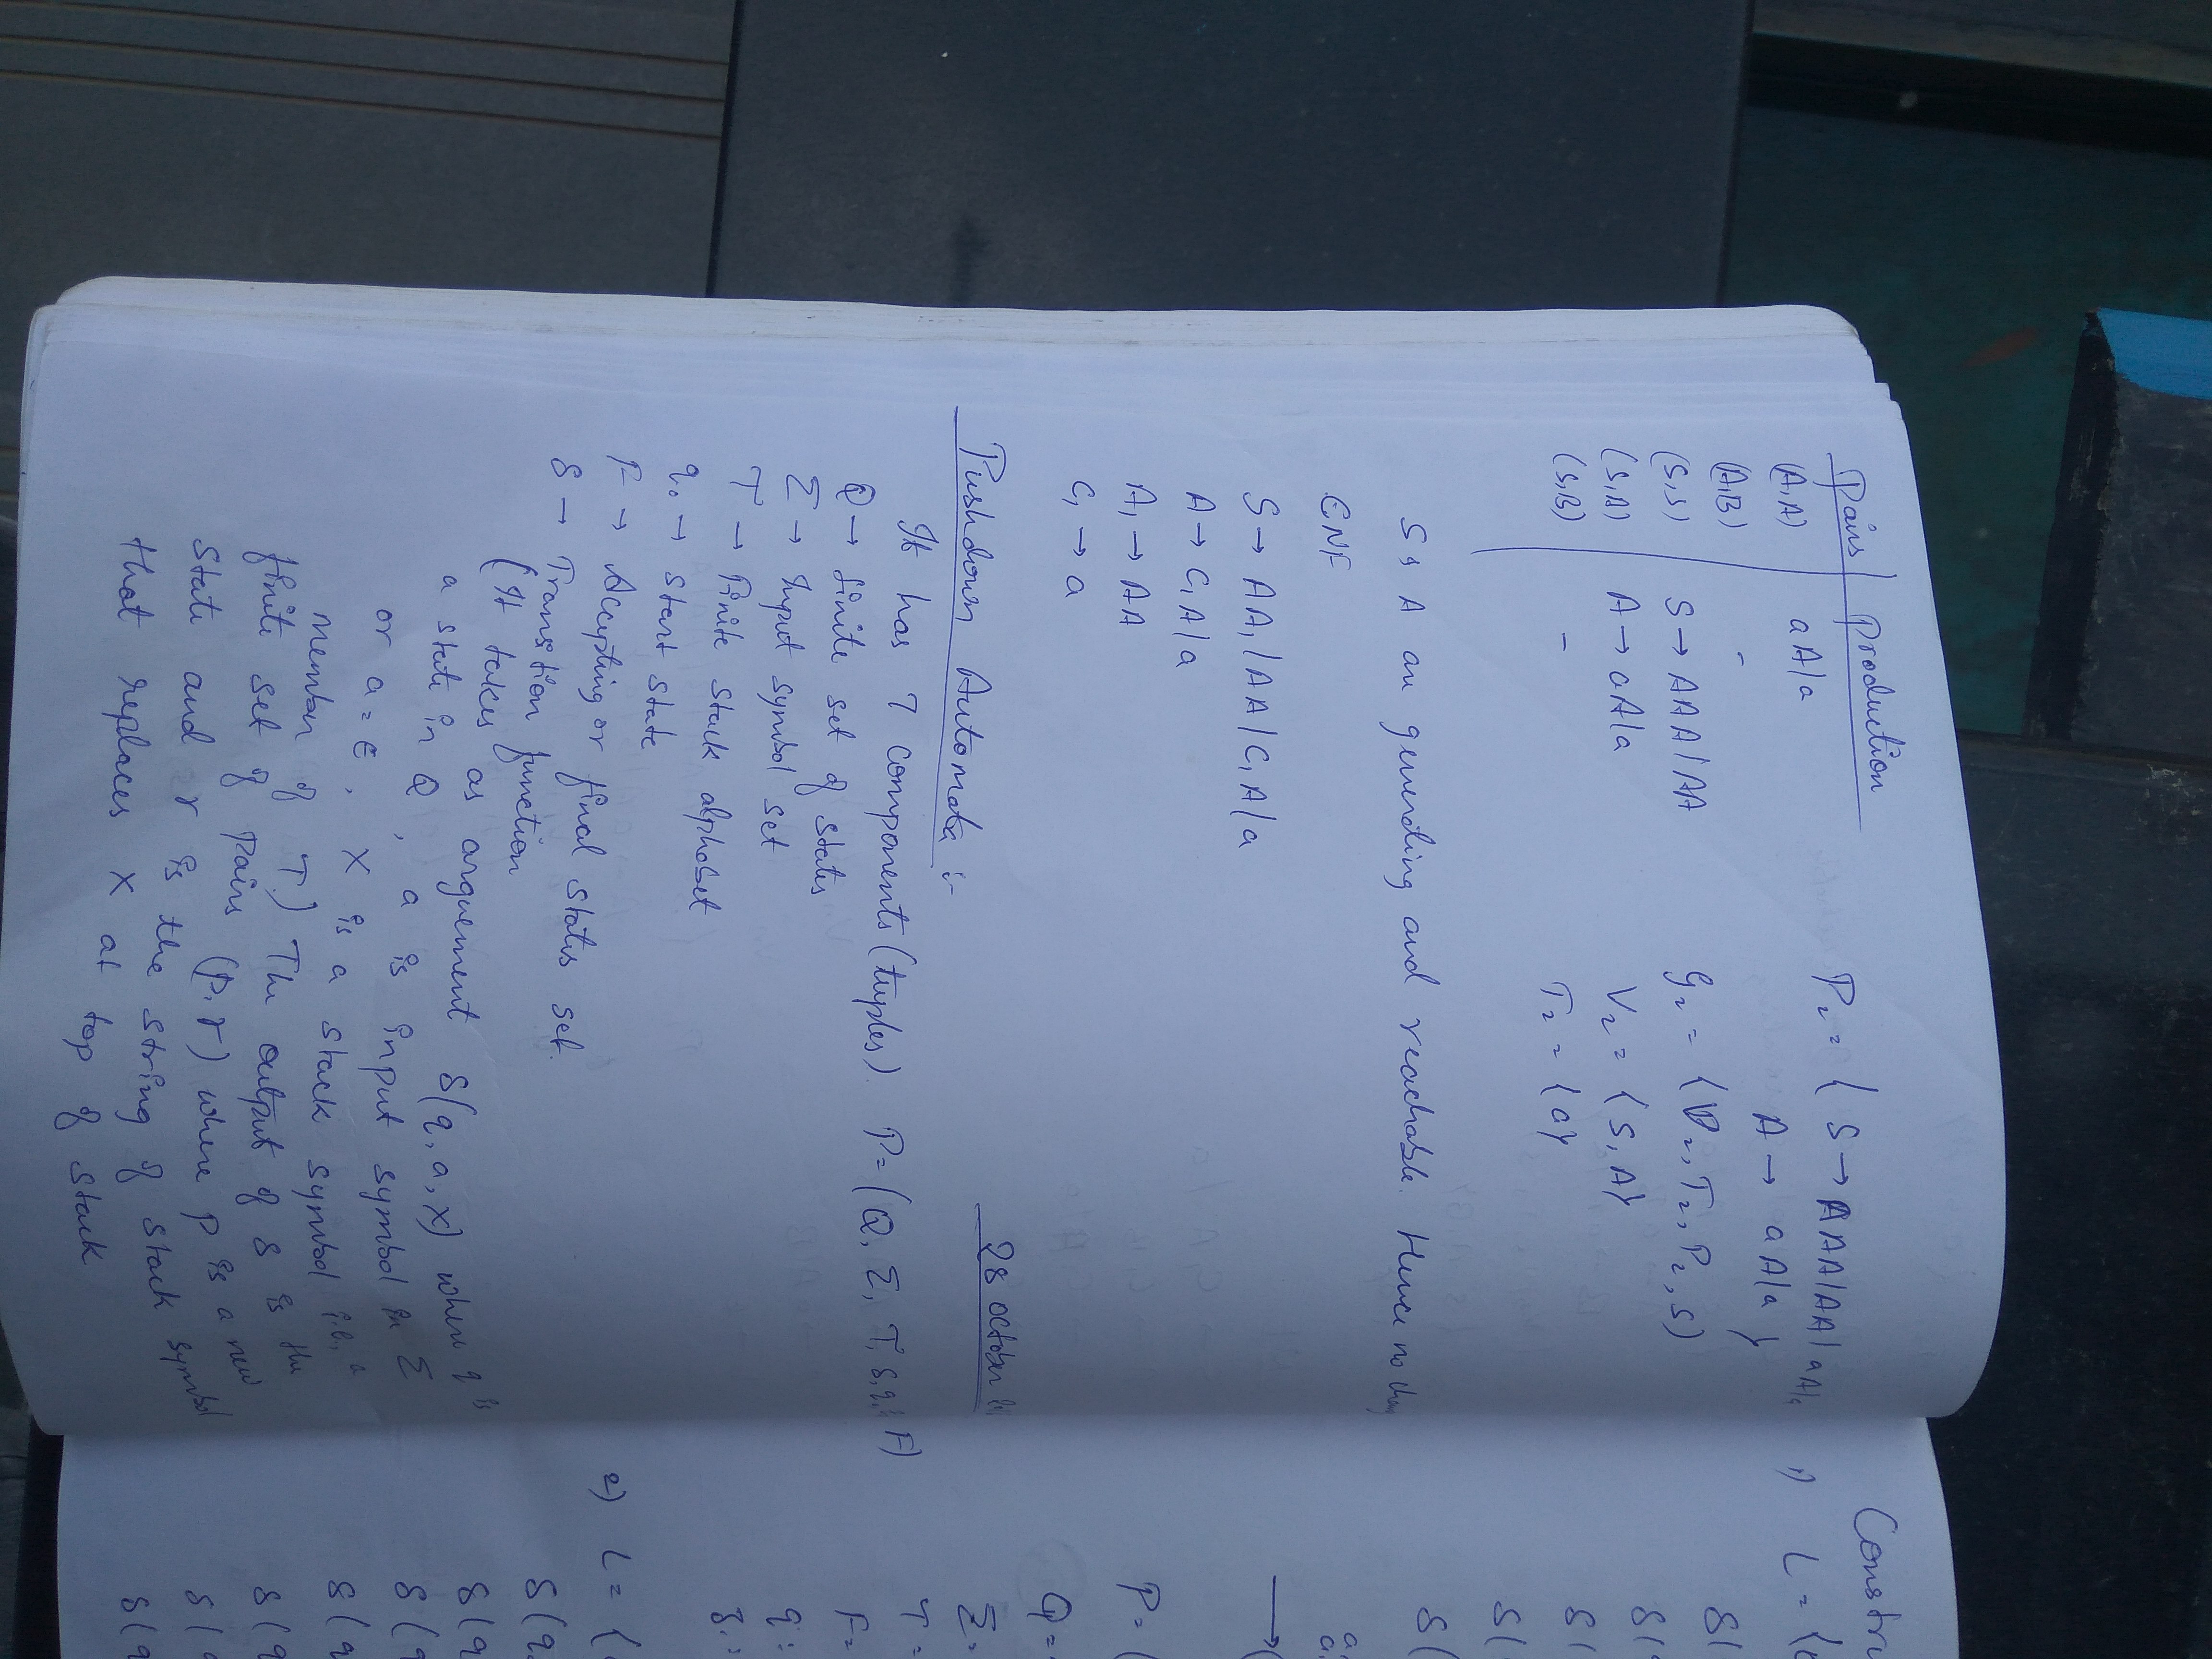 Pairs | Production
(A,A) aA/a
(A,B) -
(S,S) S → AAA/AA
(S,A) A → aA/a
(S,B) -
P₂ = { S → AAA/AA/aA/a
A → aA/a }
G₂ = (V₂, T₂, P₂, S)
V₂ = {S, A}
T₂ = {a}
S, A are generating and reachable. Hence no
CNF
S → AA₁/AA/C₁A/a
A → C₁A/a
A₁ → AA
C₁ → a
28 October
Pushdown Automata :-
It has 7 components (tuples). P = (Q, Σ, T, δ, q, F)
Q → finite set of states
Σ → Input symbol set
T → Finite stack alphabet
q₀ → start state
F → Accepting or final states set.
δ → Transition function
(It takes as arguement δ(q, a, X) where q is
a state in Q, a is input symbol in Σ
or a = ε, X is a stack symbol i.e, a
member of T.) The output of δ is the
finite set of Pairs (P, r) where P is a new
state and r is the string of stack symbol
that replaces X at top of stack
Constru
1) L = {
δ(
δ(
δ(
δ(
δ(
a
→
P = (
Q =
Σ =
T =
F =
q :
2) L = {
δ(q
δ(q
δ(q
δ(q
δ(q
δ(
δ(q